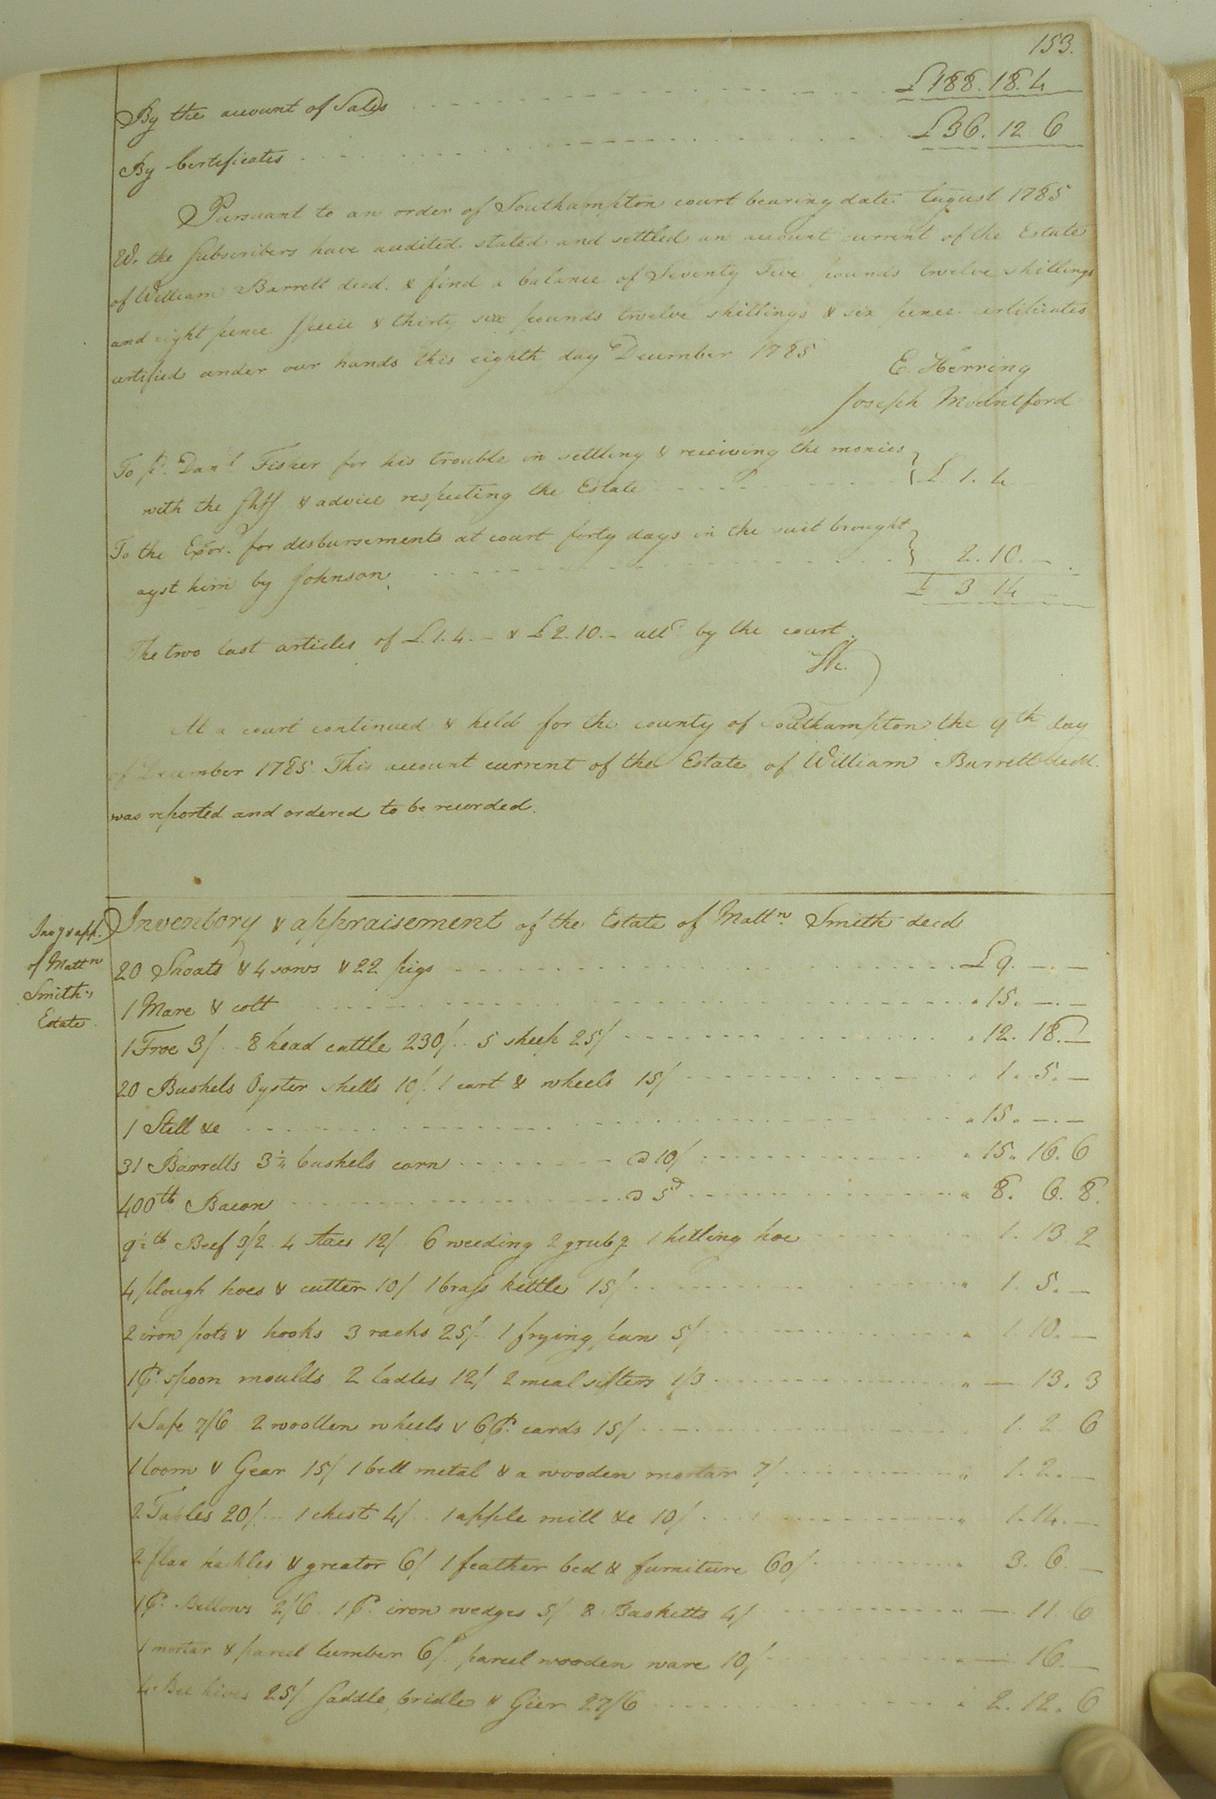 153.
By the account of Sales £188.18.4
By Certificates £36.12 6
Pursuant to an order of Southampton court bearing date August 1785
We the subscribers have audited stated and settled an account current of the Estate
of William Barrett decd. & find a balance of Seventy five pounds twelve shillings
and eight pence specie & thirty six pounds twelve shillings & six pence certificates
certified under our hands this eighth day December 1785
E Herring
Joseph Mountford
To pd. Danl. Fisher for his trouble in settling & receiving the monies
with the shff & advice respecting the Estate £ 1.4
To the Exor. for disbursements at court forty days in the suit brought
agst him by Johnson 2.10.–
£ 3 14
The two last articles of £1.4.– & £2.10.– alld by the court
At a court continued & held for the county of Southampton the 9th day
of December 1785 This account current of the Estate of William Barrett decd.
was reported and ordered to be recorded.
Invy & app.
of Mattw
Smith's
Estate
Inventory & appraisement of the Estate of Mattw. Smith decd
20 Shoats & 4 sows & 22 pigs £9.–.–
1 Mare & colt 15.–.–
1 Froe 3/ 8 head cattle 230/. 5 sheep 25/ 12.18.–
20 Bushels Oyster shells 10/. 1 cart & wheels 15/ 1.5.–
1 Still &c 15.–.–
31 Barrells 3½ bushels corn @ 10/ 15.16.6
400lb Bacon @ 5d 8.6.8.
9½lb Beef 3/2 4 axes 12/ 6 weeding 2 grubg 1 hilling hoe 1.13.2
4 plough hoes & cutter 10/ 1 brass kettle 15/ 1.5.–
2 iron pots & hooks 3 racks 25/. 1 frying pan 5/ 1.10.–
1 Pr. spoon moulds 2 ladles 12/ 2 meal sifters 1/3 –13.3
1 Safe 7/6 2 woollen wheels & 6 Pr. cards 15/ 1.2.6
1 loom & Gear 15/ 1 bell metal & a wooden mortar 7/ 1.2.–
2 Tables 20/. 1 chest 4/. 1 apple mill &c 10/ 1.14.–
2 flax hackles & greator 6/ 1 feather bed & furniture 60/ 3.6.–
1 Pr. Bellows 2/6 1 Pr. iron wedges 5/ 8 Basketts 4/ –11.6
1 mortar & parcel lumber 6/. parcel wooden ware 10/ –16.–
4 Bee hives 25/ saddle, bridle & Gier 27/6 2.12.6